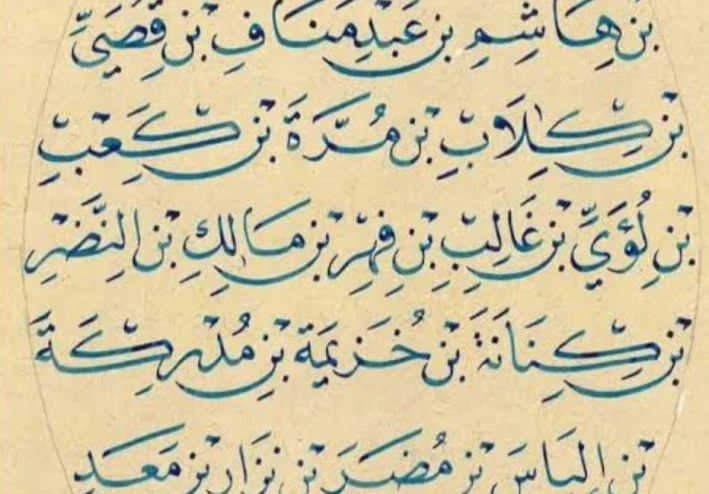 بْنِ هَاشِمِ بْنِ عَبْدِ مَنَافِ بْنِ قُصَيِّ
بْنِ كِلَابِ بْنِ مُرَّةَ بْنِ كَعْبِ
بْنِ لُؤَيِّ بْنِ غَالِبِ بْنِ فِهْرِ بْنِ مَالِكِ بْنِ النَّضْرِ
بْنِ كِنَانَةَ بْنِ خُزَيْمَةَ بْنِ مُدْرِكَةَ
بْنِ إِلْيَاسَ بْنِ مُضَرَ بْنِ نِزَارِ بْنِ مَعَدِّ